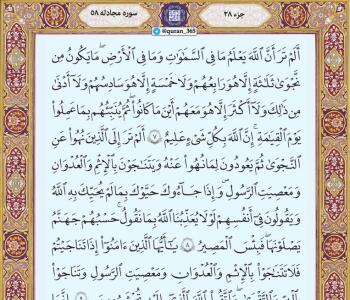 جزء ۲۸
@quran_365
سوره مجادله ۵۸
أَلَمۡ تَرَ أَنَّ ٱللَّهَ يَعۡلَمُ مَا فِي ٱلسَّمَٰوَٰتِ وَمَا فِي ٱلۡأَرۡضِۖ مَا يَكُونُ مِن
نَّجۡوَىٰ ثَلَٰثَةٍ إِلَّا هُوَ رَابِعُهُمۡ وَلَا خَمۡسَةٍ إِلَّا هُوَ سَادِسُهُمۡ وَلَآ أَدۡنَىٰ
مِن ذَٰلِكَ وَلَآ أَكۡثَرَ إِلَّا هُوَ مَعَهُمۡ أَيۡنَ مَا كَانُواْۖ ثُمَّ يُنَبِّئُهُم بِمَا عَمِلُواْ
يَوۡمَ ٱلۡقِيَٰمَةِۚ إِنَّ ٱللَّهَ بِكُلِّ شَيۡءٍ عَلِيمٌ ٧ أَلَمۡ تَرَ إِلَى ٱلَّذِينَ نُهُواْ عَنِ
ٱلنَّجۡوَىٰ ثُمَّ يَعُودُونَ لِمَا نُهُواْ عَنۡهُ وَيَتَنَٰجَوۡنَ بِٱلۡإِثۡمِ وَٱلۡعُدۡوَٰنِ
وَمَعۡصِيَتِ ٱلرَّسُولِۖ وَإِذَا جَآءُوكَ حَيَّوۡكَ بِمَا لَمۡ يُحَيِّكَ بِهِ ٱللَّهُ
وَيَقُولُونَ فِيٓ أَنفُسِهِمۡ لَوۡلَا يُعَذِّبُنَا ٱللَّهُ بِمَا نَقُولُۚ حَسۡبُهُمۡ جَهَنَّمُ
يَصۡلَوۡنَهَاۖ فَبِئۡسَ ٱلۡمَصِيرُ ٨ يَٰٓأَيُّهَا ٱلَّذِينَ ءَامَنُوٓاْ إِذَا تَنَٰجَيۡتُمۡ
فَلَا تَتَنَٰجَوۡاْ بِٱلۡإِثۡمِ وَٱلۡعُدۡوَٰنِ وَمَعۡصِيَتِ ٱلرَّسُولِ وَتَنَٰجَوۡاْ